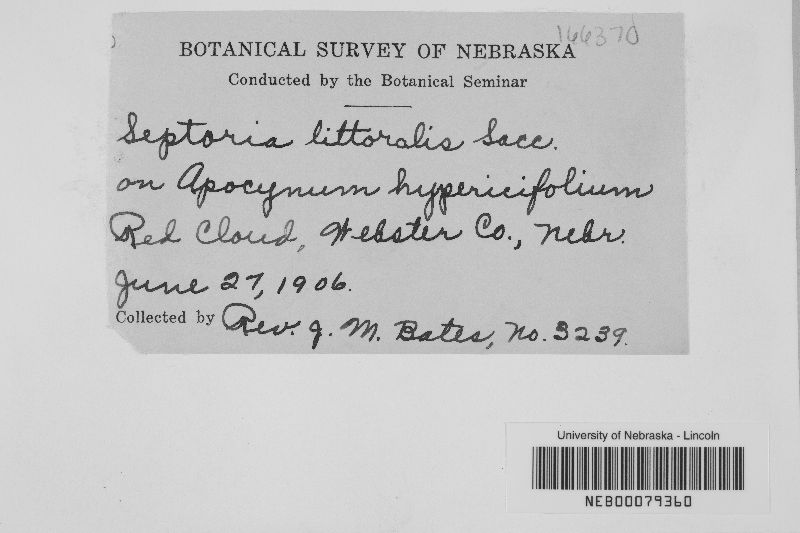 166370
BOTANICAL SURVEY OF NEBRASKA
Conducted by the Botanical Seminar
Septoria littoralis Sacc.
on Apocynum hypericifolium
Red Cloud, Webster Co., Nebr.
June 27, 1906.
Collected by Rev. J. M. Bates, No. 3239.
University of Nebraska - Lincoln
NEB00079360